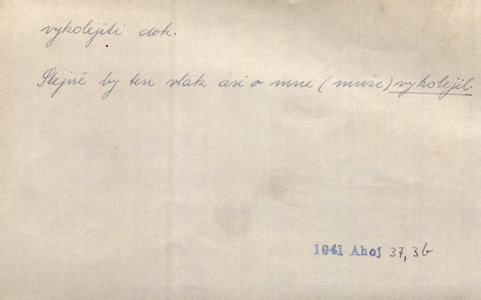 vykolejiti dok.
Stejně by ten vlak asi o mne (muže) vykolejil.
1941 Ahoj 37, 3b